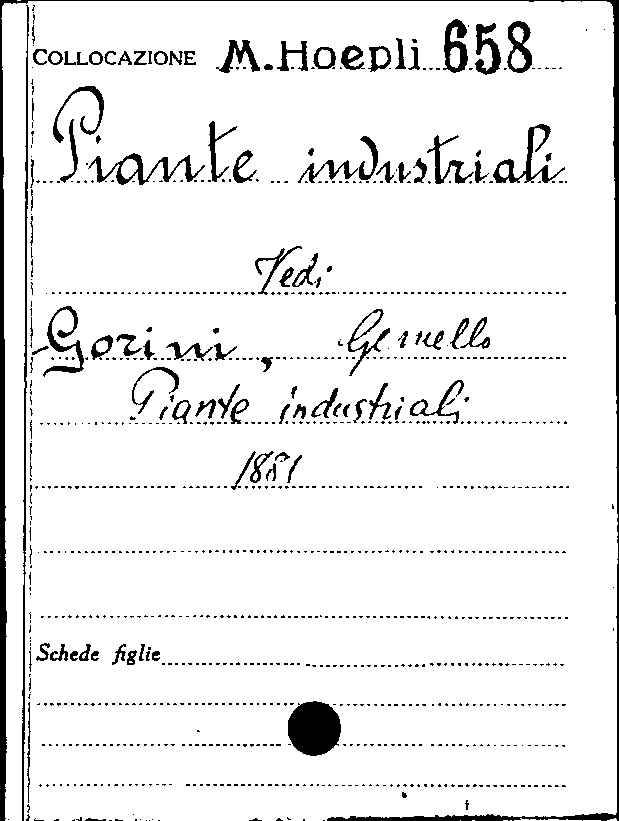 COLLOCAZIONE M. Hoepli 658
Piante industriali
Vedi
Gorini, Gemello
Piante industriali
1881
Schede figlie